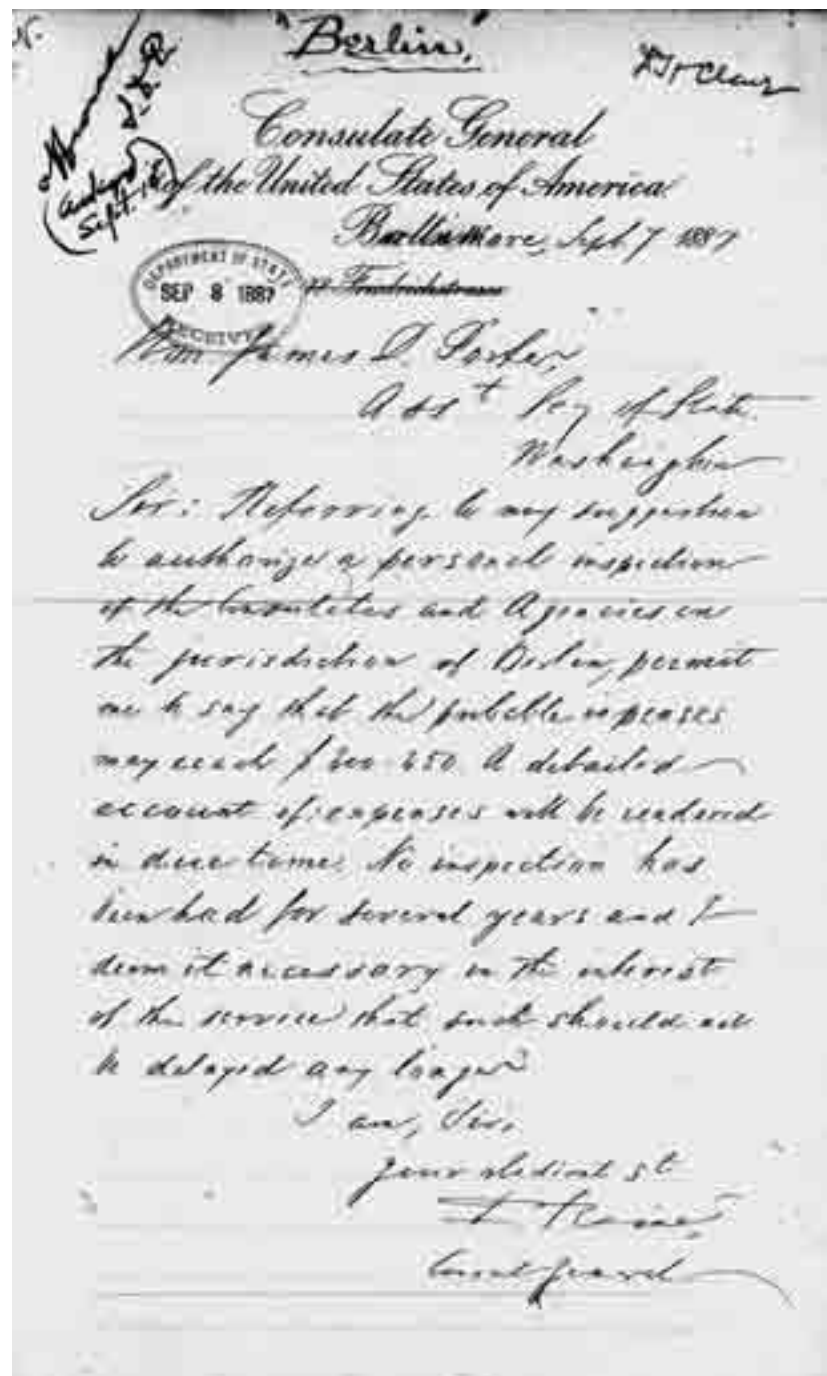 "Berlin"
Consulate General
of the United States of America.
Baltimore, Sept. 7 1887
DEPARTMENT OF STATE
SEP 8 1887
RECEIVED
Friedrichstrasse
Hon James D. Porter,
Asst Scy of State
Washington
Sir: Referring to my suggestion
to authorize a personal inspection
of the Consulates and Agencies in
the jurisdiction of Berlin, permit
me to say that the probable expenses
may reach $
A detailed
account of expenses will be rendered
in due time. No inspection has
been had for several years and I
deem it necessary in the interest
of the service that such should not
be delayed any longer
I am, Sir,
Your obedient st
Raine,
Consul General